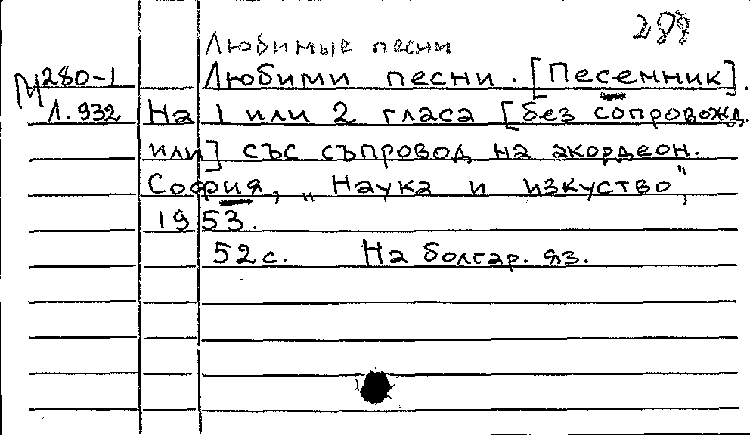 289
Любимые песни
М280-1 Любими песни. [Песенник].
Л.932 На 1 или 2 гласа [без сопровожд.
или] със съпровод на акордеон.
София, "Наука и изкуство",
1953.
52 с. На болгар. яз.